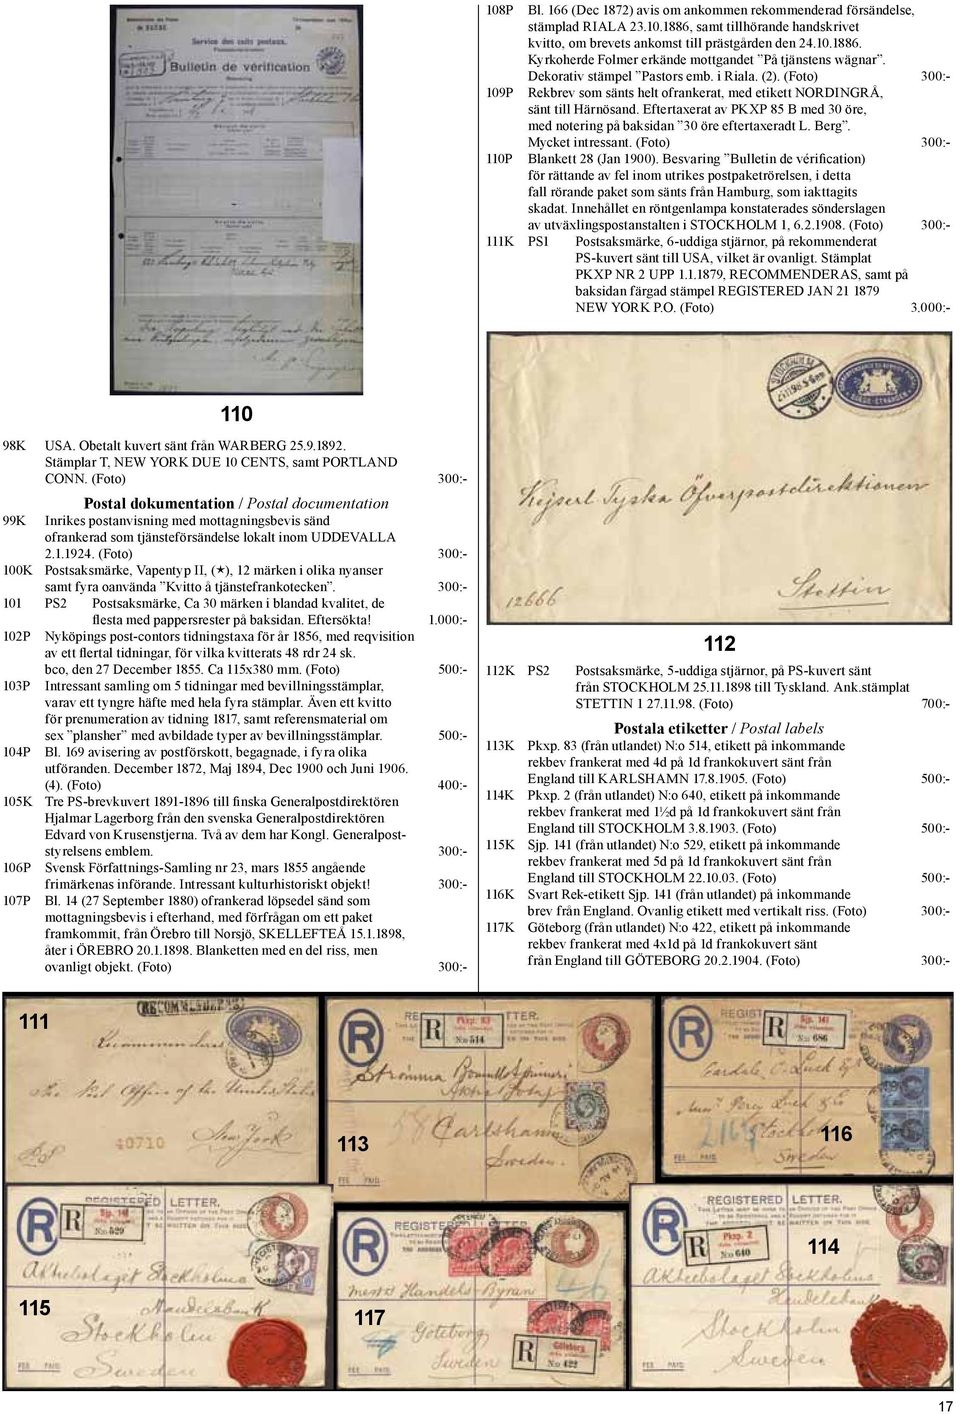 110
98K USA. Obetalt kuvert sänt från WARBERG 25.9.1892.
Stämplar T, NEW YORK DUE 10 CENTS, samt PORTLAND
CONN. (Foto) 300:-
Postal dokumentation / Postal documentation
99K Inrikes postanvisning med mottagningsbevis sänd
ofrankerad som tjänsteförsändelse lokalt inom UDDEVALLA
2.1.1924. (Foto) 300:-
100K Postsaksmärke, Vapentyp II, (★), 12 märken i olika nyanser
samt fyra oanvända ”Kvitto å tjänstefrankotecken”. 300:-
101 PS2 Postsaksmärke, Ca 30 märken i blandad kvalitet, de
flesta med pappersrester på baksidan. Eftersökta! 1.000:-
102P Nyköpings post-contors tidningstaxa för år 1856, med reqvisition
av ett flertal tidningar, för vilka kvitterats 48 rdr 24 sk.
bco, den 27 December 1855. Ca 115x380 mm. (Foto) 500:-
103P Intressant samling om 5 tidningar med bevillningsstämplar,
varav ett tyngre häfte med hela fyra stämplar. Även ett kvitto
för prenumeration av tidning 1817, samt referensmaterial om
sex ”plansher” med avbildade typer av bevillningsstämplar. 500:-
104P Bl. 169 avisering av postförskott, begagnade, i fyra olika
utföranden. December 1872, Maj 1894, Dec 1900 och Juni 1906.
(4). (Foto) 400:-
105K Tre PS-brevkuvert 1891-1896 till finska Generalpostdirektören
Hjalmar Lagerborg från den svenska Generalpostdirektören
Edvard von Krusenstjerna. Två av dem har Kongl. Generalpost-
styrelsens emblem. 300:-
106P Svensk Författnings-Samling nr 23, mars 1855 angående
frimärkenas införande. Intressant kulturhistoriskt objekt! 300:-
107P Bl. 14 (27 September 1880) ofrankerad löpsedel sänd som
mottagningsbevis i efterhand, med förfrågan om ett paket
framkommit, från Örebro till Norsjö, SKELLEFTEÅ 15.1.1898,
åter i ÖREBRO 20.1.1898. Blanketten med en del riss, men
ovanligt objekt. (Foto) 300:-
108P Bl. 166 (Dec 1872) avis om ankommen rekommenderad försändelse,
stämplad RIALA 23.10.1886, samt tillhörande handskrivet
kvitto, om brevets ankomst till prästgården den 24.10.1886.
Kyrkoherde Folmer erkände mottgandet ”På tjänstens wägnar”.
Dekorativ stämpel ”Pastors emb. i Riala. (2). (Foto) 300:-
109P Rekbrev som sänts helt ofrankerat, med etikett NORDINGRÅ,
sänt till Härnösand. Eftertaxerat av PKXP 85 B med 30 öre,
med notering på baksidan ”30 öre eftertaxeradt L. Berg”.
Mycket intressant. (Foto) 300:-
110P Blankett 28 (Jan 1900). Besvaring ”Bulletin de vérification)
för rättande av fel inom utrikes postpaketrörelsen, i detta
fall rörande paket som sänts från Hamburg, som iakttagits
skadat. Innehållet en röntgenlampa konstaterades sönderslagen
av utväxlingspostanstalten i STOCKHOLM 1, 6.2.1908. (Foto) 300:-
111K PS1 Postsaksmärke, 6-uddiga stjärnor, på rekommenderat
PS-kuvert sänt till USA, vilket är ovanligt. Stämplat
PKXP NR 2 UPP 1.1.1879, RECOMMENDERAS, samt på
baksidan färgad stämpel REGISTERED JAN 21 1879
NEW YORK P.O. (Foto) 3.000:-
Kejserl. Tyska Öfverpostdirektionen
Stettin
12666
112
112K PS2 Postsaksmärke, 5-uddiga stjärnor, på PS-kuvert sänt
från STOCKHOLM 25.11.1898 till Tyskland. Ank.stämplat
STETTIN 1 27.11.98. (Foto) 700:-
Postala etiketter / Postal labels
113K Pkxp. 83 (från utlandet) N:o 514, etikett på inkommande
rekbev frankerat med 4d på 1d frankokuvert sänt från
England till KARLSHAMN 17.8.1905. (Foto) 500:-
114K Pkxp. 2 (från utlandet) N:o 640, etikett på inkommande
rekbev frankerat med 1½d på 1d frankokuvert sänt från
England till STOCKHOLM 3.8.1903. (Foto) 500:-
115K Sjp. 141 (från utlandet) N:o 529, etikett på inkommande
rekbev frankerat med 5d på 1d frankokuvert sänt från
England till STOCKHOLM 22.10.03. (Foto) 500:-
116K Svart Rek-etikett Sjp. 141 (från utlandet) på inkommande
brev från England. Ovanlig etikett med vertikalt riss. (Foto) 300:-
117K Göteborg (från utlandet) N:o 422, etikett på inkommande
rekbev frankerat med 4x1d på 1d frankokuvert sänt
från England till GÖTEBORG 20.2.1904. (Foto) 300:-
111
RECOMMENDERAS
The Post Office of the United States
New York
40710
R Pkxp. 83
N:o 514
Carlshamn
Sweden
FEE PAID
113
R Sjp. 141
N:o 686
Stockholm
Sweden
FEE PAID
116
REGISTERED LETTER.
R Sjp. 141
N:o 529
Aktiebolaget Stockholms
Handelsbank
Stockholm
Sweden
FEE PAID
115
REGISTERED LETTER
Göteborg
Sweden
R Göteborg
N:o 422
FEE PAID
117
REGISTERED LETTER.
R Pkxp. 2
N:o 640
Aktiebolaget Stockholms
Handelsbank
Stockholm
Sweden
FEE PAID
114
17